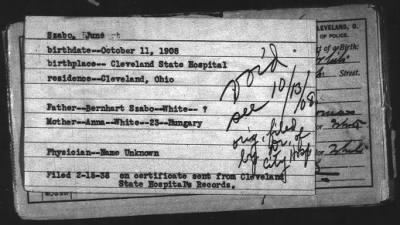 Szabo, June
birthdate--October 11, 1908
birthplace-- Cleveland State Hospital
residence--Cleveland, Ohio
Father--Bernhart Szabo--White-- ?
Mother--Anna--White--23--Hungary
Physician--Name Unknown
Filed 2-15-38 on certificate sent from Cleveland
State Hospital's Records.
Void.
see 10/13/08
orig. filed
by Dr. of
city Hosp
CLEVELAND, O.
OF POLICE.
of Birth:
Street.
White
White